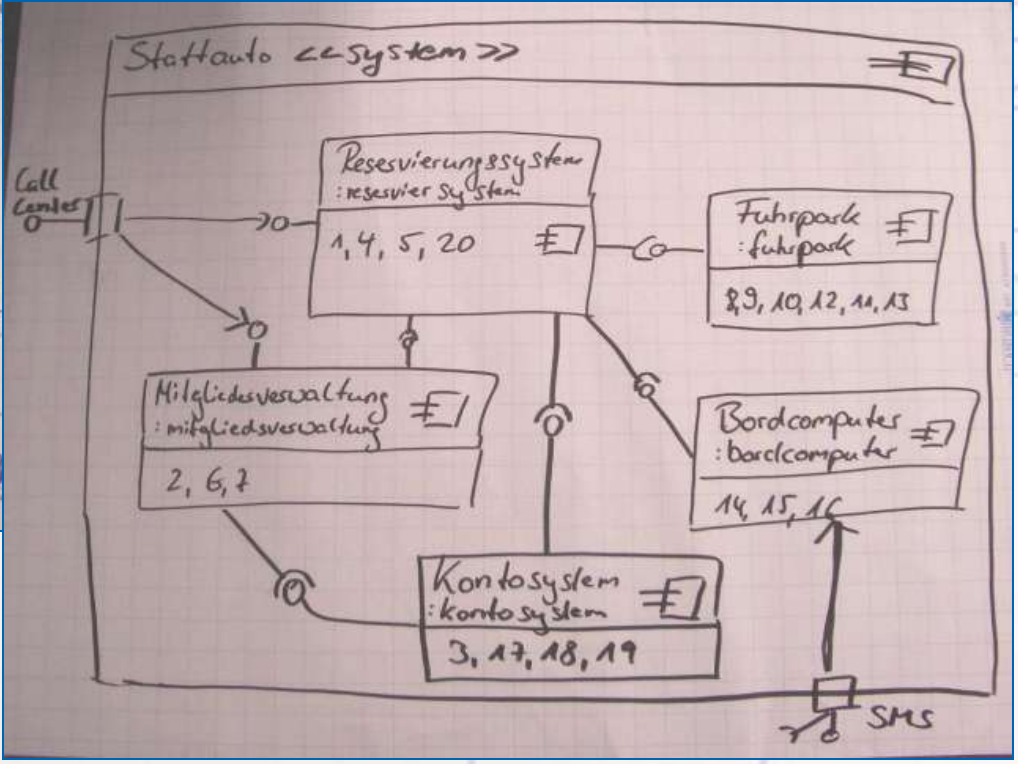 Stattauto <<system>>
Call
Center
Reservierungssystem
:reservier system
1, 4, 5, 20
Fuhrpark
:fuhrpark
8, 9, 10, 12, 11, 13
Mitgliedsverwaltung
:mitgliedsverwaltung
2, 6, 7
Bordcomputer
:bordcomputer
14, 15, 16
Kontosystem
:kontosystem
3, 17, 18, 19
SMS